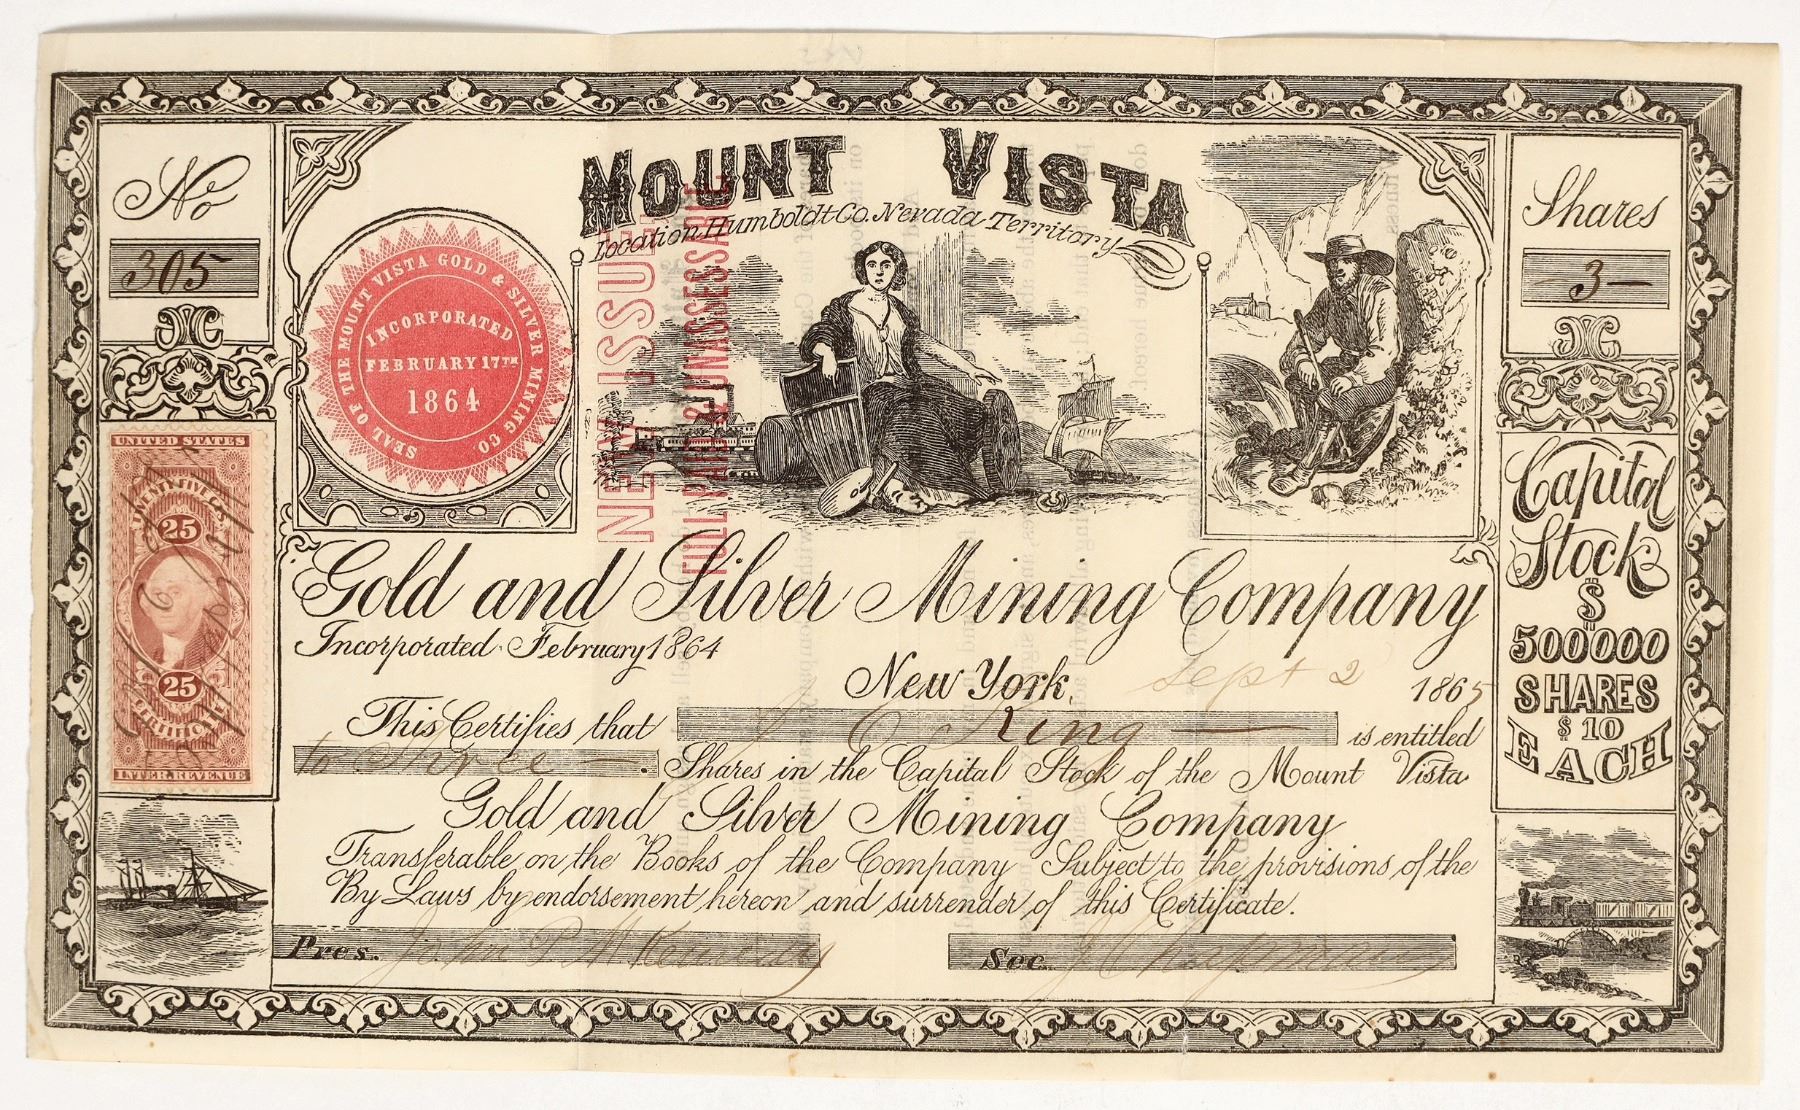 No
305
SEAL OF THE MOUNT VISTA GOLD & SILVER MINING CO
INCORPORATED
FEBRUARY 17TH
1864
MOUNT VISTA
Location Humboldt Co. Nevada Territory
NEW ISSUE
FULL PAID & UNASSESSABLE
Shares
3—
UNITED STATES
TWENTY FIVE CTS.
25
25
INTER REVENUE
Capital
Stock
$
500000
SHARES
$10
EACH
Gold and Silver Mining Company
Incorporated February 1864
New York, Sept 2 1865
This Certifies that J C King — is entitled
to Three — Shares in the Capital Stock of the Mount Vista
Gold and Silver Mining Company
Transferable on the Books of the Company Subject to the provisions of the
By Laws by endorsement hereon and surrender of this Certificate.
Pres. John P McKenney
Sec. J Chapman